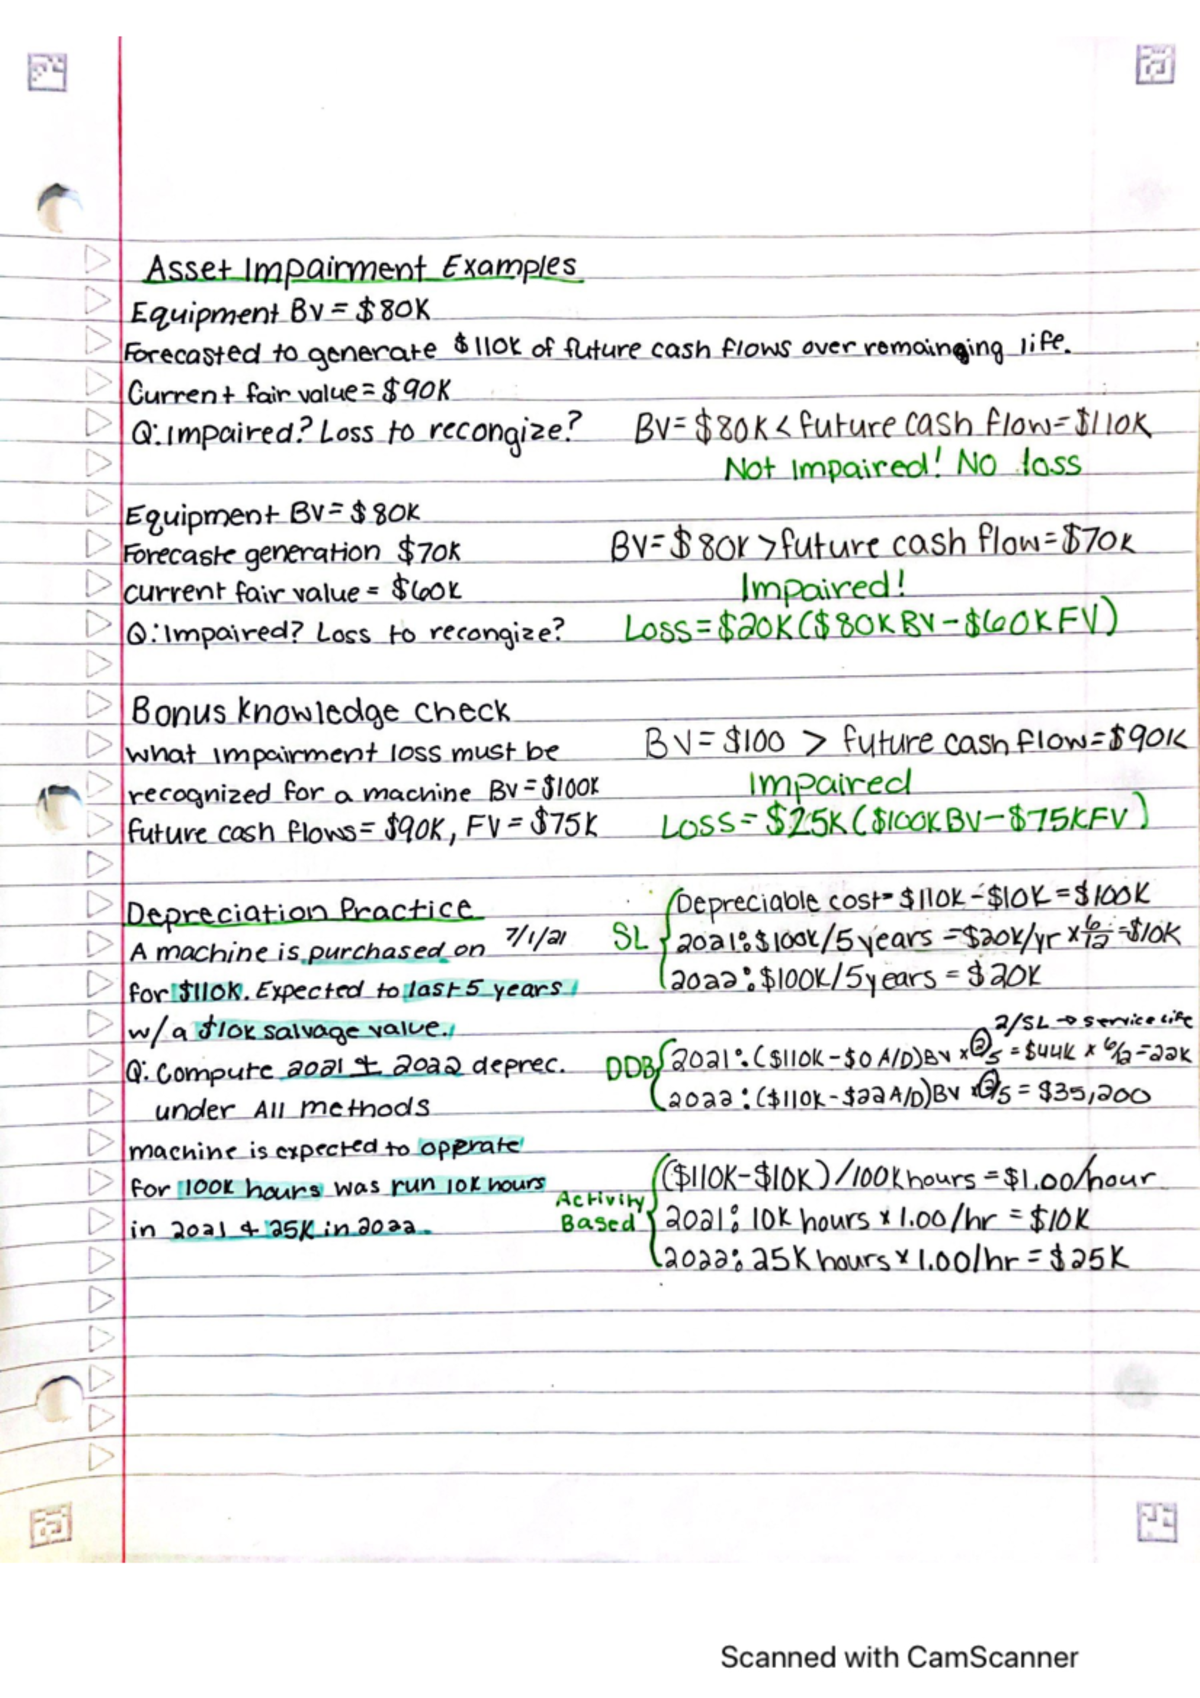 Asset Impairment Examples
Equipment BV = $80K
Forecasted to generate $110K of future cash flows over remainging life.
Current fair value = $90K
Q: Impaired? Loss to recongize? BV = $80K < future cash flow = $110K
Not Impaired! No loss
Equipment BV = $80K
Forecaste generation $70K BV = $80K > future cash flow = $70K
current fair value = $60K Impaired!
Q: Impaired? Loss to recongize? Loss = $20K ($80K BV - $60K FV)
Bonus Knowledge Check
what impairment loss must be BV = $100 > future cash flow = $90K
recognized for a machine BV = $100K Impaired
future cash flows = $90K, FV = $75K Loss = $25K ($100K BV - $75K FV)
Depreciation Practice Depreciable cost = $110K - $10K = $100K
A machine is purchased on 7/1/21 SL 2021: $100K/5 years = $20K/yr x 6/12 = $10K
for $110K. Expected to last 5 years 2022: $100K/5 years = $20K
w/ a $10K salvage value. 2/SL → service life
Q: Compute 2021 + 2022 deprec. DDB 2021: ($110K - $0 A/D) BV x 2/5 = $44K x 6/12 = 22K
under All methods 2022: ($110K - $22 A/D) BV x 2/5 = $35,200
machine is expected to opprate
for 100K hours was run 10K hours ($110K - $10K) / 100K hours = $1.00/hour
in 2021 + 25K in 2022. Activity Based 2021: 10K hours x 1.00/hr = $10K
2022: 25K hours x 1.00/hr = $25K
Scanned with CamScanner